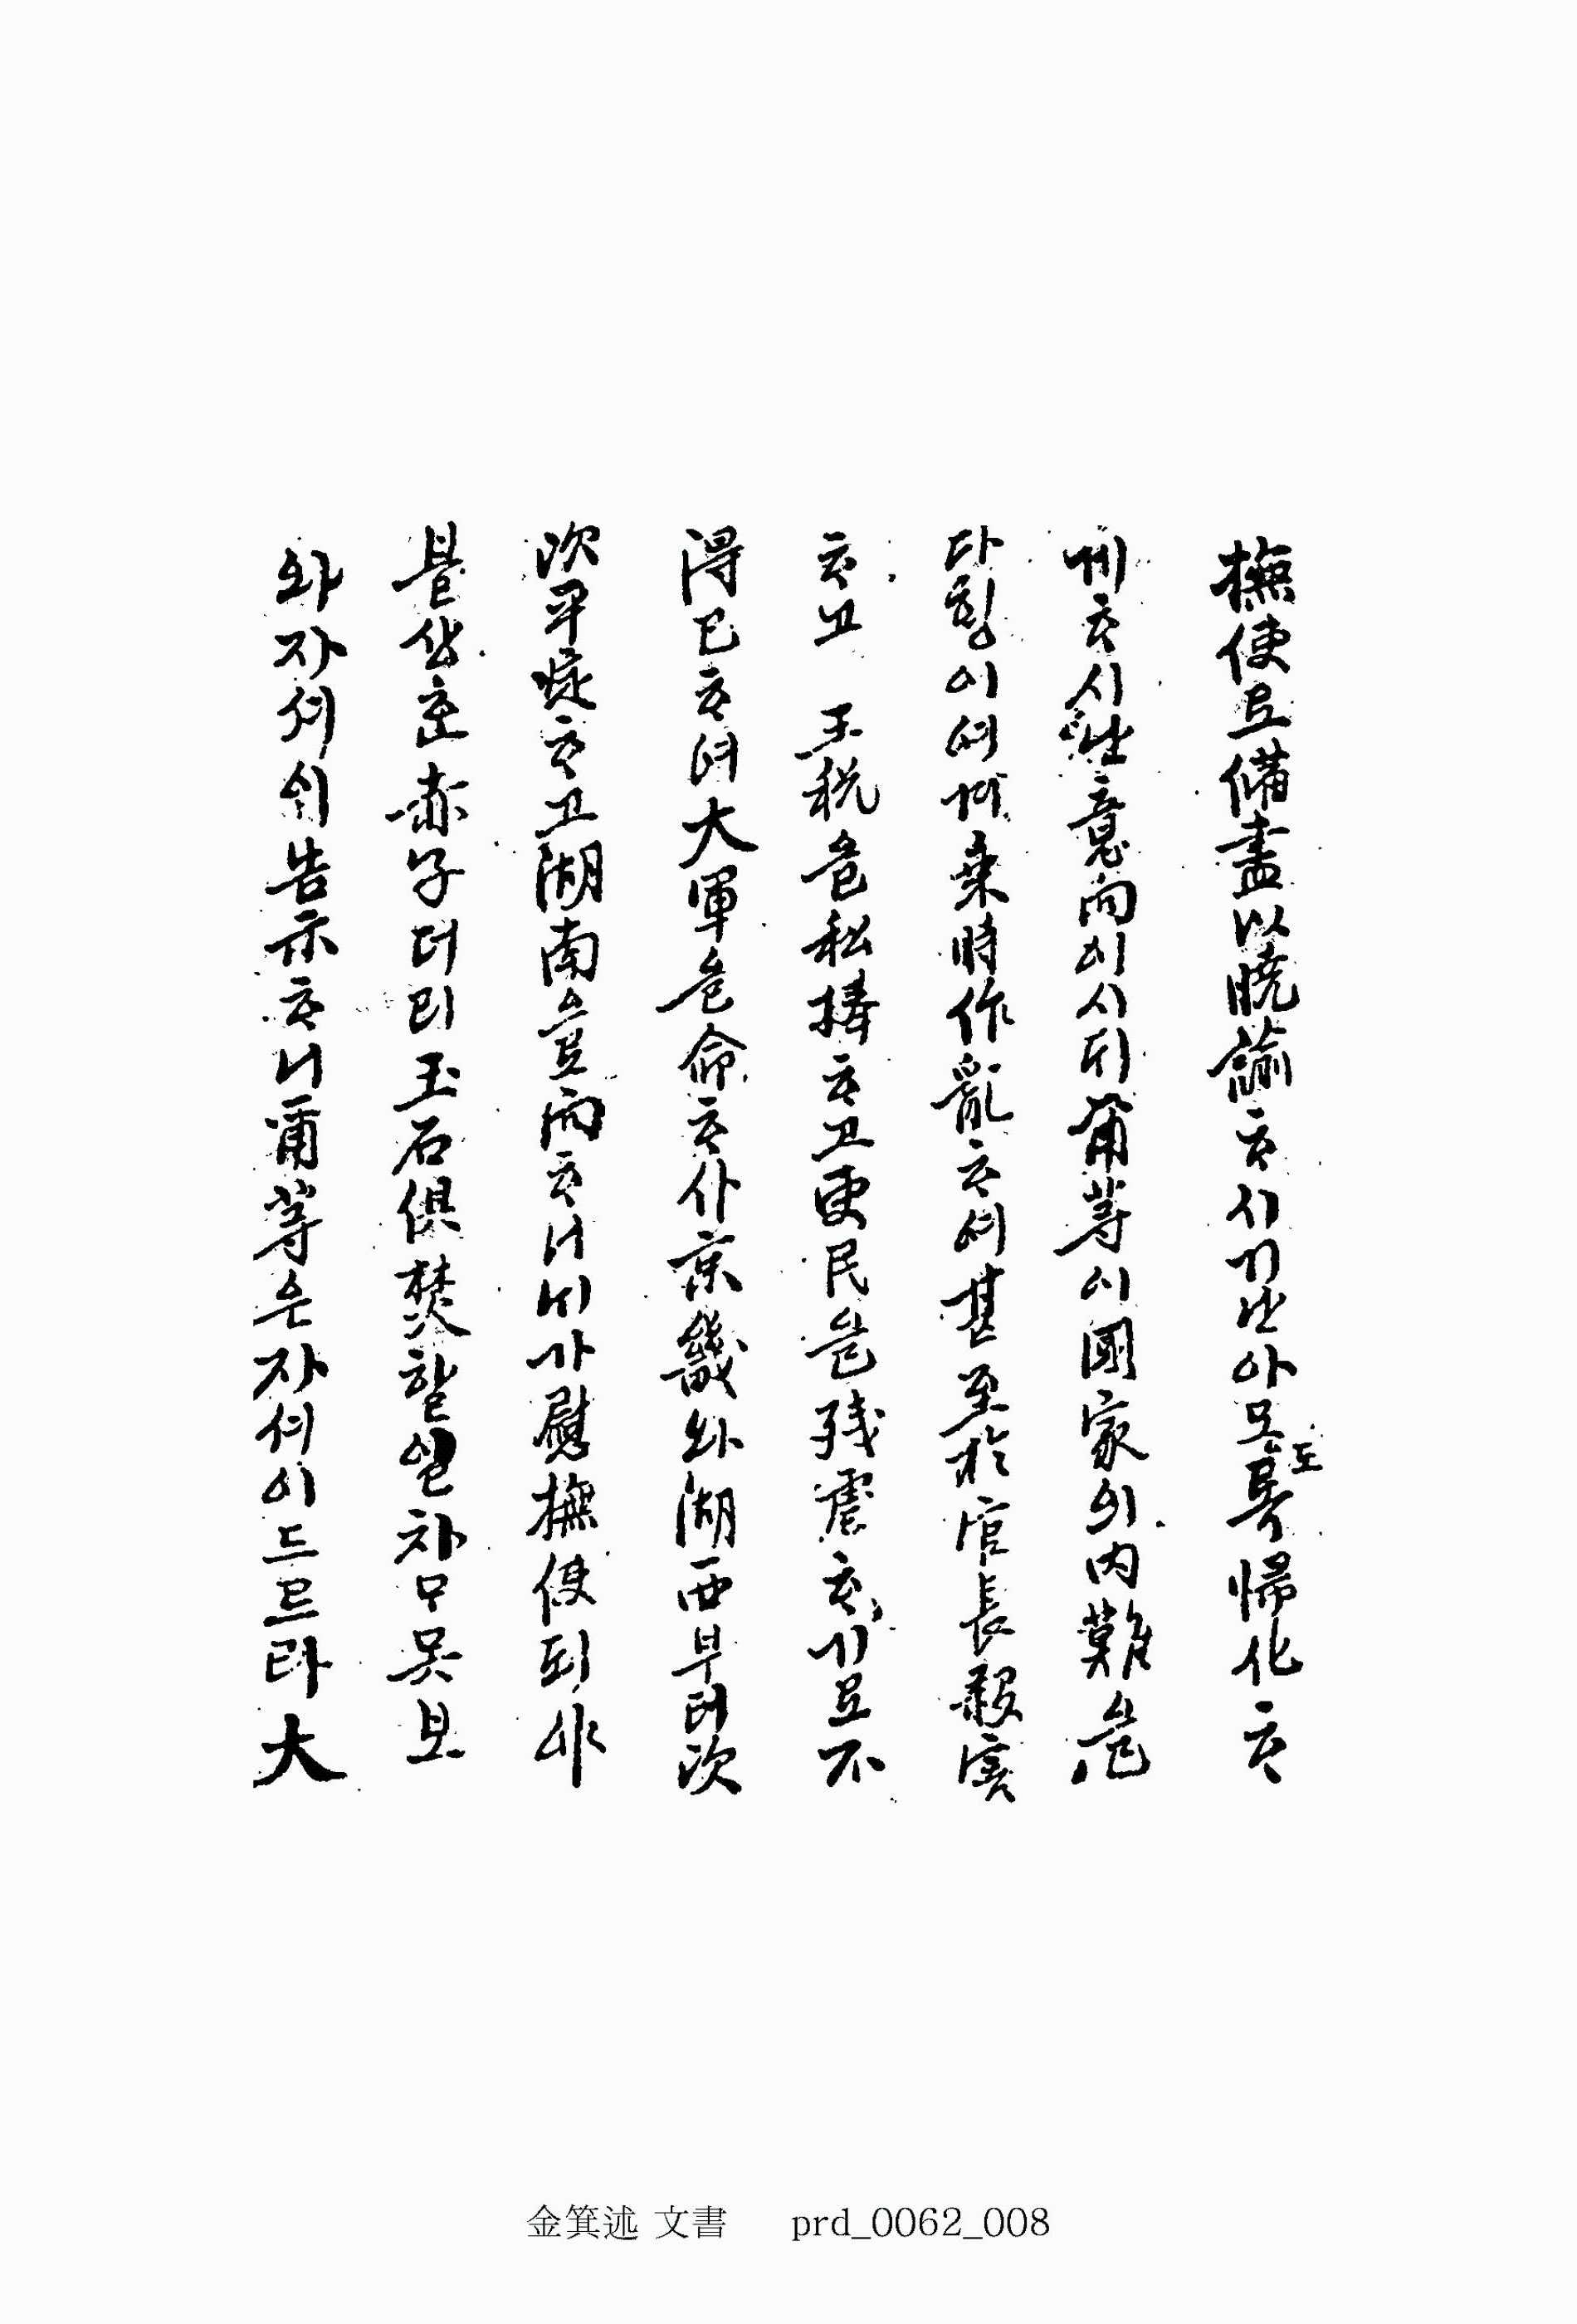 撫使로備盡以曉諭ᄒᆞ시기날아모도록歸化ᄒᆞ
게ᄒᆞ시난意向이시되爾等이國家의内難을
다힝이여겨乘時作亂ᄒᆞ여甚至於官長殺害
ᄒᆞ고 王稅을私捧ᄒᆞ고吏民을殘虐ᄒᆞ기로不
得已ᄒᆞ여大軍을命ᄒᆞᄉᆞ京畿와湖西부터次
次平定ᄒᆞ고湖南으로向ᄒᆞ니ᄂᆡ가慰撫使되야
불상ᄒᆞᆫ赤子더리玉石俱焚할일참무못보
와자셔이告示ᄒᆞ니爾等은자셔이드르라大
金箕述 文書 prd_0062_008